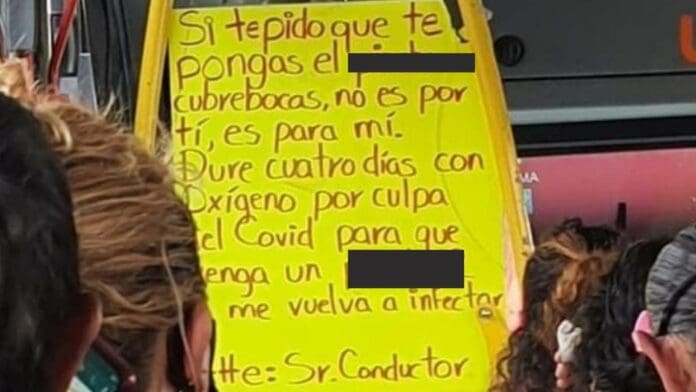 Si te pido que te
pongas el
cubrebocas, no es por
tí, es para mí.
Dure cuatro días con
Oxígeno por culpa
el Covid para que
enga un
me vuelva a infectar
tte: Sr. Conductor
MA